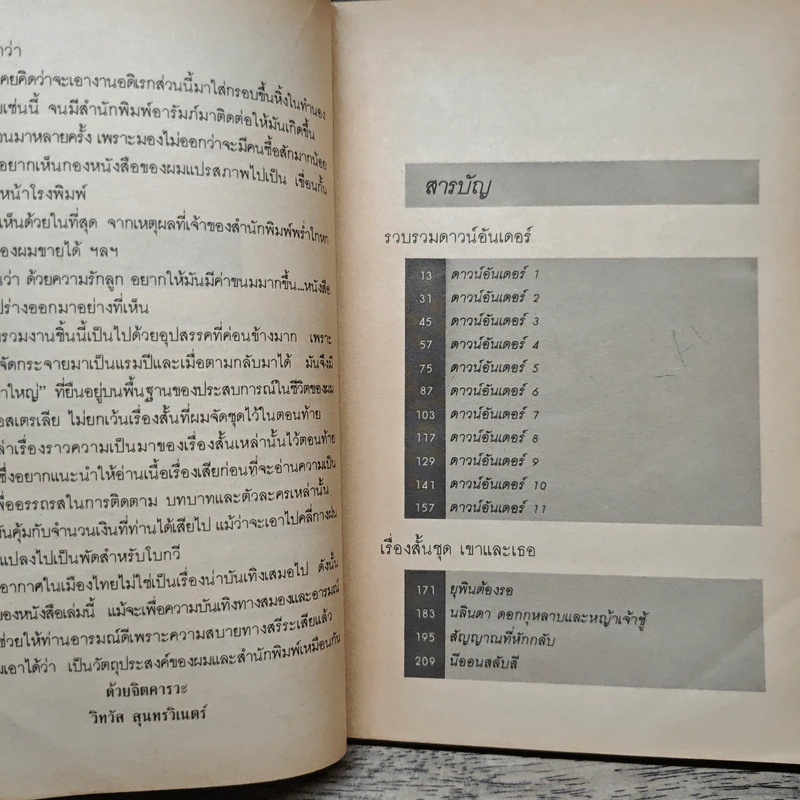 ว่า
เคยคิดว่าจะเอางานอดิเรกส่วนนี้มาใส่กรอบขึ้นหิ้งในทำนอง
เช่นนี้ จนมีสำนักพิมพ์อารัมภ์มาติดต่อให้มันเกิดขึ้น
มาหลายครั้ง เพราะมองไม่ออกว่าจะมีคนซื้อสักมากน้อย
อยากเห็นกองหนังสือของผมแปรสภาพไปเป็น เขื่อนกั้น
หน้าโรงพิมพ์
เห็นด้วยในที่สุด จากเหตุผลที่เจ้าของสำนักพิมพ์พร่ำโกหก
ของผมขายได้ ฯลฯ
ว่า ด้วยความรักลูก อยากให้มันมีค่าขนมมากขึ้น...หนังสือ
ปร่างออกมาอย่างที่เห็น
รวมงานชิ้นนี้เป็นไปด้วยอุปสรรคที่ค่อนข้างมาก เพราะ
จัดกระจายมาเป็นแรมปีและเมื่อตามกลับมาได้ มันจึงมี
าใหญ่” ที่ยืนอยู่บนพื้นฐานของประสบการณ์ในชีวิตของผม
อสเตรเลีย ไม่ยกเว้นเรื่องสั้นที่ผมจัดชุดไว้ในตอนท้าย
ล่าเรื่องราวความเป็นมาของเรื่องสั้นเหล่านั้นไว้ตอนท้าย
ซึ่งอยากแนะนำให้อ่านเนื้อเรื่องเสียก่อนที่จะอ่านความเป็น
พื่ออรรถรสในการติดตาม บทบาทและตัวละครเหล่านั้น
คุ้มกับจำนวนเงินที่ท่านได้เสียไป แม้ว่าจะเอาไปคลี่กางฝน
แปลงไปเป็นพัดสำหรับโบกวี
อากาศในเมืองไทยไม่ใช่เป็นเรื่องน่าบันเทิงเสมอไป ดังนั้น
ของหนังสือเล่มนี้ แม้จะเพื่อความบันเทิงทางสมองและอารมณ์
ช่วยให้ท่านอารมณ์ดีเพราะความสบายทางสรีระเสียแล้ว
เอาได้ว่า เป็นวัตถุประสงค์ของผมและสำนักพิมพ์เหมือนกัน
ด้วยจิตคารวะ
วิทวัส สุนทรวิเนตร์
สารบัญ
รวบรวมดาวน์อันเดอร์
13 ดาวน์อันเดอร์ 1
31 ดาวน์อันเดอร์ 2
45 ดาวน์อันเดอร์ 3
57 ดาวน์อันเดอร์ 4
75 ดาวน์อันเดอร์ 5
87 ดาวน์อันเดอร์ 6
103 ดาวน์อันเดอร์ 7
117 ดาวน์อันเดอร์ 8
129 ดาวน์อันเดอร์ 9
141 ดาวน์อันเดอร์ 10
157 ดาวน์อันเดอร์ 11
เรื่องสั้นชุด เขาและเธอ
171 ยุพินต้องรอ
183 นลินดา ดอกกุหลาบและหญ้าเจ้าชู้
195 สัญญาณที่หักกลับ
209 นีออนสลับสี